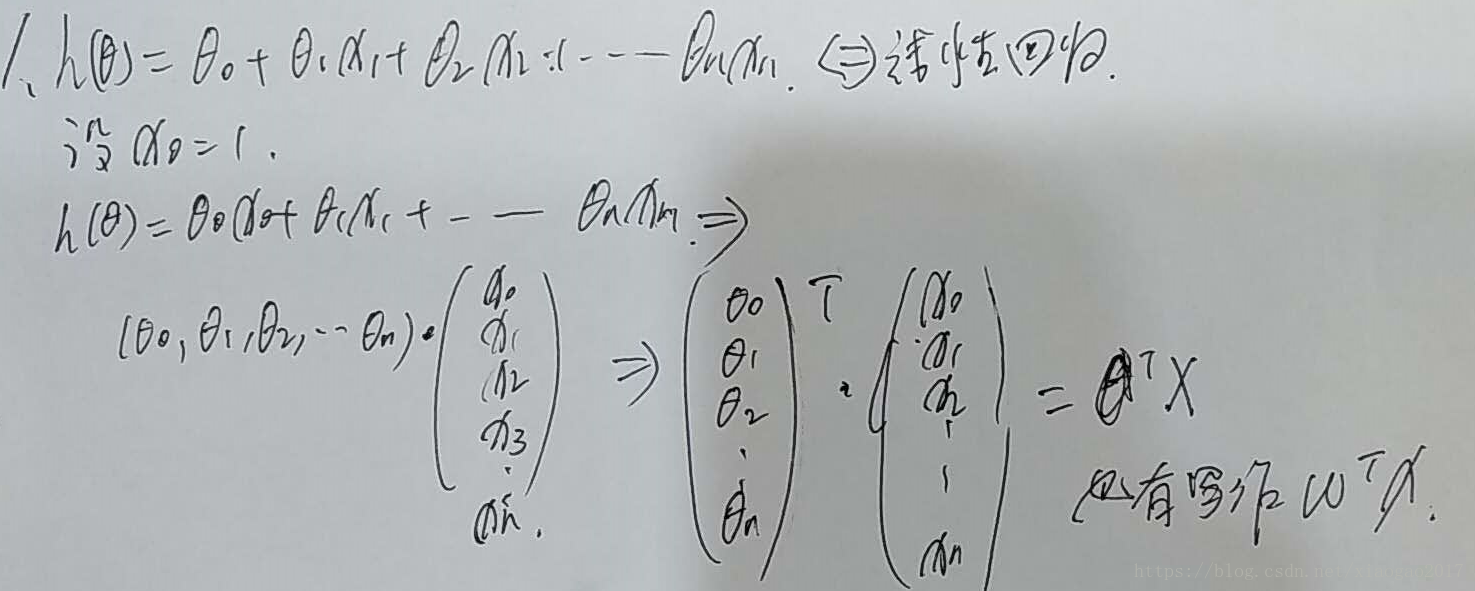 1、h(θ)=θ₀+θ₁x₁+θ₂x₂+----θₙxₙ. ⇔线性回归.
设x₀=1.
h(θ)=θ₀x₀+θ₁x₁+-— θₙxₙ.⇒
(θ₀,θ₁,θ₂,--θₙ)·(x₀ x₁ x₂ x₃ ⋮ xₙ.) ⇒ (θ₀ θ₁ θ₂ ⋮ θₙ)ᵀ·(x₀ x₁ x₂ ⋮ xₙ) = θᵀX
也有写作 ωᵀx.
https://blog.csdn.net/